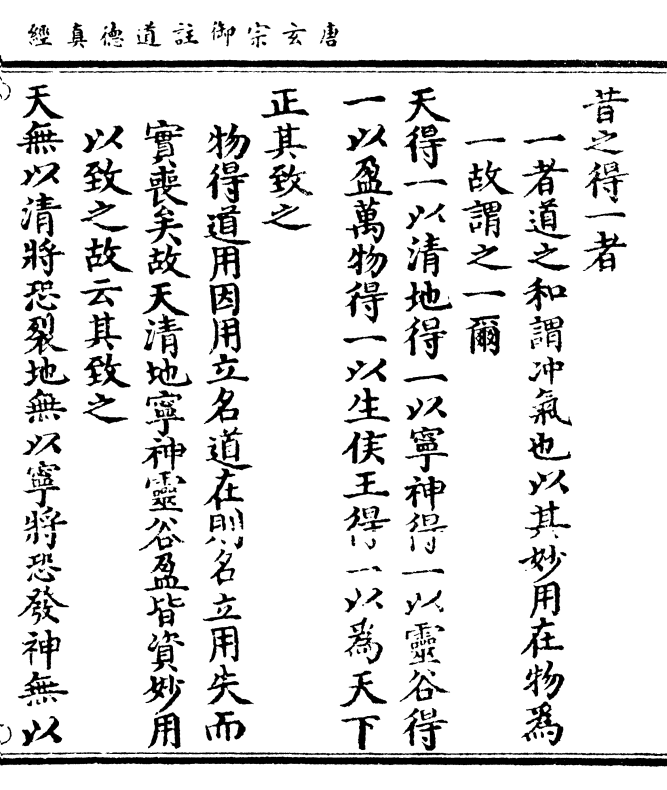 唐玄宗御註道德真經
昔之得一者
一者道之和謂冲氣也以其妙用在物爲
一故謂之一爾
天得一以清地得一以寧神得一以靈谷得
一以盈萬物得一以生侯王得一以爲天下
正其致之
物得道用因用立名道在則名立用失而
實喪矣故天清地寧神靈谷盈皆資妙用
以致之故云其致之
天無以清將恐裂地無以寧將恐發神無以